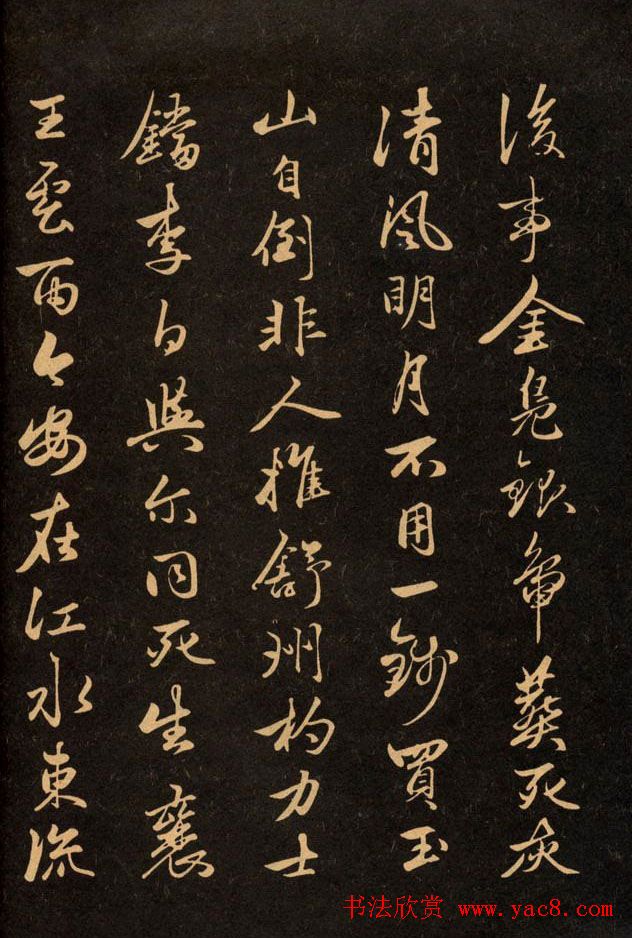 後事金鳧銀鴨葬死灰
清風明月不用一錢買玉
山自倒非人推舒州杓力士
鐺李白與尔同死生襄
王雲雨今安在江水東流
书法欣赏 www.yac8.com